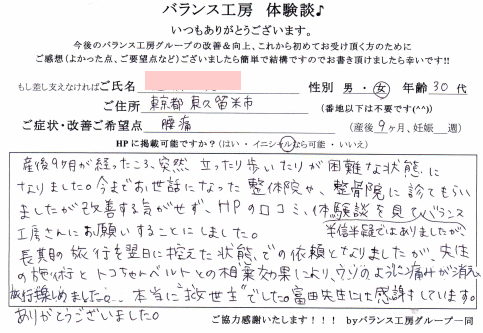 バランス工房 体験談♪
いつもありがとうございます。
今後のバランス工房グループの改善&向上、これから初めてお受け頂く方のために
ご感想(よかった点、ご要望点など)ございましたら簡単で結構ですのでお書き頂けましたら幸いです!!
もし差し支えなければご氏名 性別 男・女 年齢30代
ご住所 東京都東久留米市 (番地以下は不要です(^^))
ご症状・改善ご希望点 腰痛 (産後9ヶ月、妊娠 週)
HPに掲載可能ですか?(はい・イニシャルなら可能・いいえ)
産後9ヶ月が経ったころ、突然、立ったり歩いたりが困難な状態に
なりました。今までお世話になった整体院や、整骨院に診てもらい
ましたが改善する気がせず、HPの口コミ、体験談を見てバランス
工房さんにお願いすることにしました。半信半疑ではありましたが、
長期の旅行を翌日に控えた状態での依頼となりましたが、先生
の施術とトコちゃんベルトとの相乗効果により、ウソのように痛みが消え
旅行楽しめました。本当に"救世主"でした。富田先生に感謝しています。
ありがとうございました。
ご協力感謝いたします!!! byバランス工房グループ一同